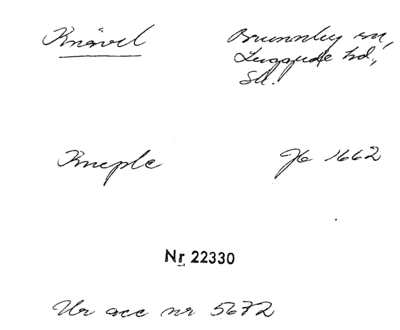 Knävel Brunnby sn,
Luggude hd,
Sk.
Kneple Jb 1662
Nr 22330
Ur acc nr 5672